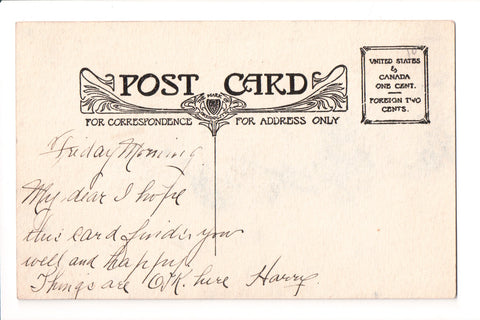 POST CARD
FOR CORRESPONDENCE
FOR ADDRESS ONLY
UNITED STATES
&
CANADA
ONE CENT.
FOREIGN TWO
CENTS.
Friday Morning
My dear I hope
this card finds you
well and happy
Things are O.K. here Harry